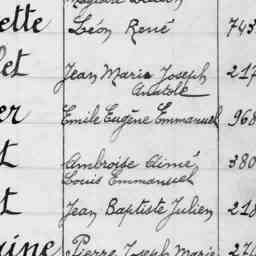 ette Léon René 745
let Jean Marie Joseph 217
Anatole
er Emile Eugène Emmanuel 968
t Ambroise Aimé 380
Louis Emmanuel
t Jean Baptiste Julien 218
aine Pierre Joseph Marie 274